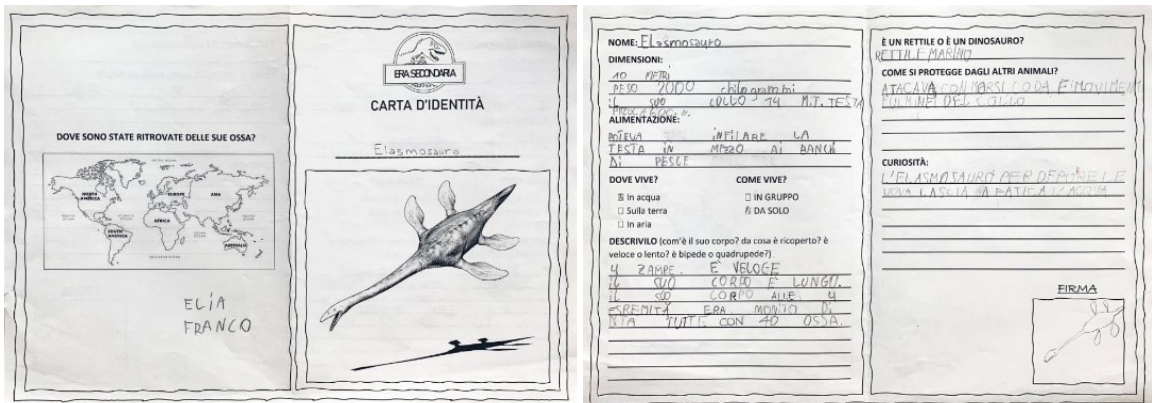 DOVE SONO STATE RITROVATE DELLE SUE OSSA?
NORTH AMERICA
EUROPE
ASIA
AFRICA
SOUTH AMERICA
AUSTRALIA
ELIA
FRANCO
ERA SECONDARIA
CARTA D'IDENTITÀ
Elasmosauro
NOME: Elasmosauro
DIMENSIONI:
10 METRI
PESO 2000 chilogrammi
IL SUO COLLO 14 M.T. TESTA
ALIMENTAZIONE:
POTEVA INFILARE LA
TESTA IN MEZZO AI BANCHI
DI PESCE
DOVE VIVE?
In acqua
Sulla terra
In aria
COME VIVE?
IN GRUPPO
DA SOLO
DESCRIVILO (com'è il suo corpo? da cosa è ricoperto? è
veloce o lento? è bipede o quadrupede?)
4 ZAMPE. È VELOCE
IL SUO CORPO È LUNGO.
IL SUO CORPO ALLE 4
ESREMITÀ ERA MONITO DI
TUTTE CON 40 OSSA.
È UN RETTILE O È UN DINOSAURO?
RETTILE MARINO
COME SI PROTEGGE DAGLI ALTRI ANIMALI?
ATACAVA CON MORSI CODA E MOVIMENTI
FULMINEI DEL COLLO
CURIOSITÀ:
L'ELASMOSAURO PER DEPORRE LE
UOVA LASCIA A FATICA L'ACQUA
FIRMA